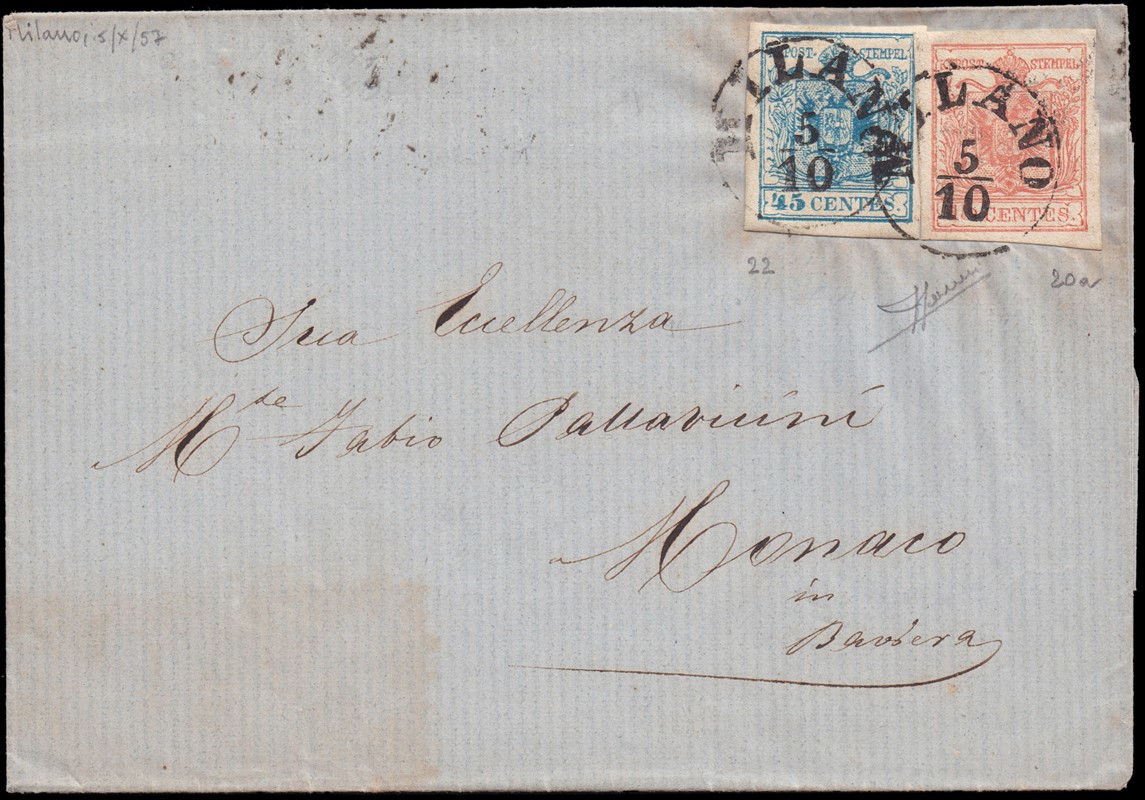 Milano, 5/X/57
KK POST- STEMPEL
45 CENTES.
MILANO
5
10
K.K. POST- STEMPEL
CENTES.
MILANO
5
10
22
20a
Sua Eccellenza
M.de Fabio Pallavicini
Monaco
in
Baviera